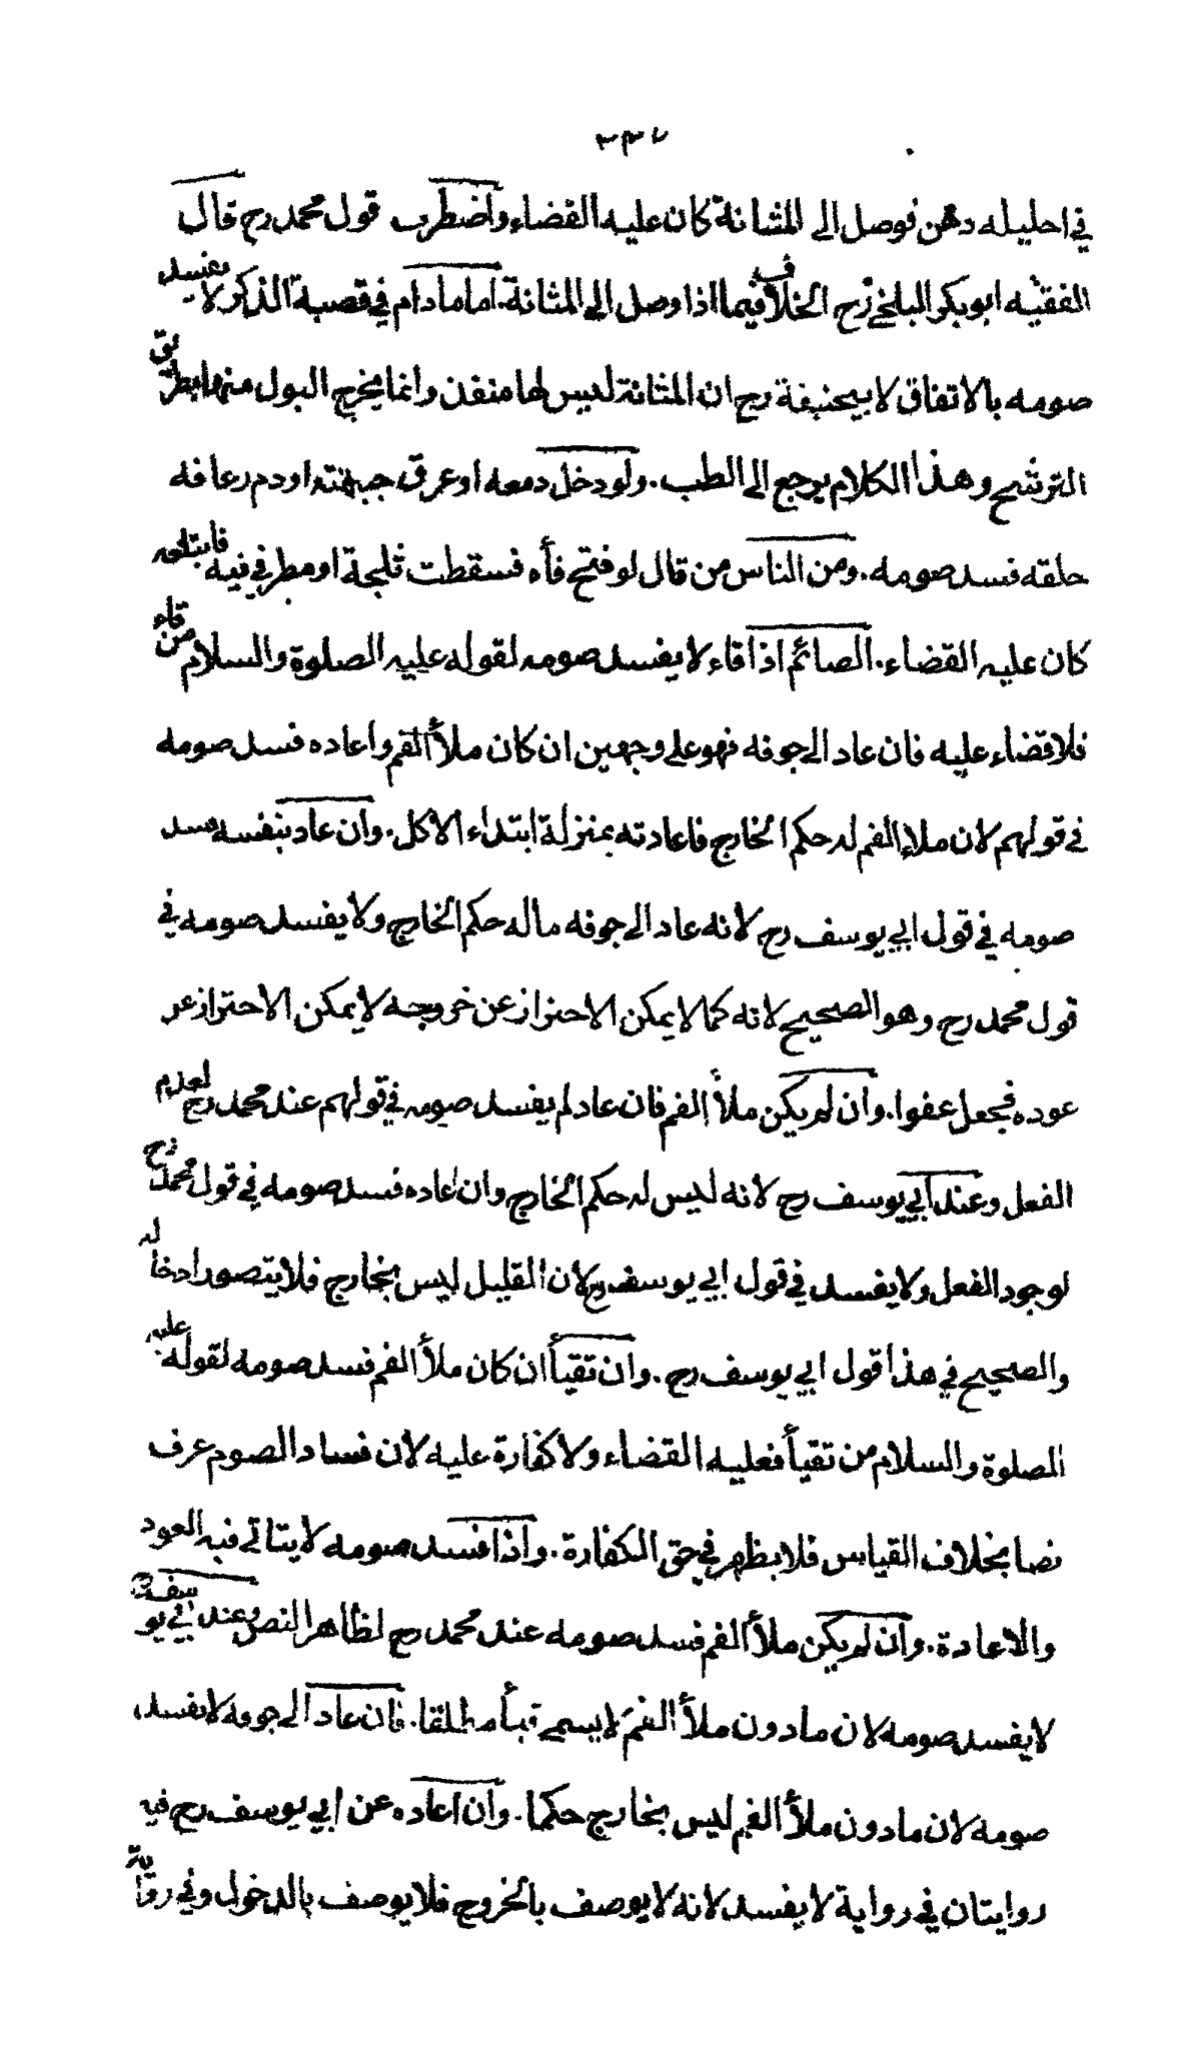 ٣٣٧
في احليله دهن فوصل الى المثانة كان عليه القضاء واضطرب قول محمد رح قال
الفقيه ابو بكر البلخي رح الخلاف فيما اذا وصل الى المثانة. اما مادام في قصبة الذكر لا يفسد
صومه بالاتفاق لابيحنيفة رح ان المثانة ليس لها منفذ وانما يخرج البول منها بطريق
الترشح وهذا الكلام يرجع الى الطب. ولو دخل دمعه او عرق جبهته او دم رعافه
حلقه فسد صومه. ومن الناس من قال لو فتح فأه فسقطت ثلجة او مطر في فيه فابتلعه
كان عليه القضاء. الصائم اذا قاء لا يفسد صومه لقوله عليه الصلوة والسلام من قاء
فلا قضاء عليه فان عاد الى جوفه فهو على وجهين ان كان ملأ الفم واعاده فسد صومه
في قولهم لان ملاء الفم له حكم الخارج فاعادته بمنزلة ابتداء الاكل. وان عاد بنفسه فسد
صومه في قول ابي يوسف رح لانه عاد الى جوفه ماله حكم الخارج ولا يفسد صومه في
قول محمد رح وهو الصحيح لانه كما لا يمكن الاحتراز عن خروجه لا يمكن الاحتراز عن
عوده فجعل عفوا. وان لم يكن ملأ الفم فان عاد لم يفسد صومه في قولهم عند محمد رح لعدم
الفعل وعند ابي يوسف رح لانه ليس له حكم الخارج وان اعاده فسد صومه في قول محمد رح
لوجود الفعل ولا يفسد في قول ابي يوسف رح لان القليل ليس بخارج فلا يتصور ادخاله
والصحيح في هذا قول ابي يوسف رح. وان تقيأ ان كان ملأ الفم فسد صومه لقوله عليه
الصلوة والسلام من تقيأ فعليه القضاء ولا كفارة عليه لان فساد الصوم عرف
نصا بخلاف القياس فلا يظهر في حق الكفارة. واذا فسد صومه لا يتاتى فيه العود
والاعادة. وان لم يكن ملأ الفم فسد صومه عند محمد رح لظاهر النص وعند ابي يوسف رح
لا يفسد صومه لان مادون ملأ الفم لا يسمى قيأ مطلقا. فان عاد الى جوفه لا يفسد
صومه لان مادون ملأ الفم ليس بخارج حكما. وان اعاده عن ابي يوسف رح فيه
روايتان في رواية لا يفسد لانه لا يوصف بالخروج فلا يوصف بالدخول وفي رواية